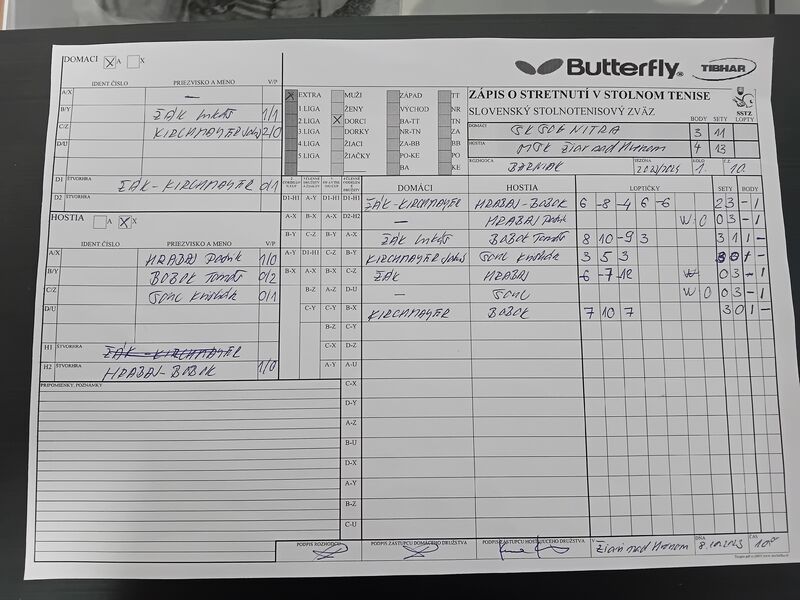 DOMACI X A X
IDENT ČÍSLO PRIEZVISKO A MENO V/P
A/X —
B/Y ŽÁK Lukáš 1/1
C/Z KIRCHMAYER 2/0
D/U
D1 ŠTVORHRA ŽÁK-KIRCHMAYER 0/1
D2 ŠTVORHRA
HOSTIA A X X
IDENT ČÍSLO PRIEZVISKO A MENO V/P
A/X HRABAJ Patrik 1/0
B/Y BOBOK Tomáš 0/2
C/Z 0/1
D/U
H1 ŠTVORHRA ŽÁK-KIRCHMAYER
H2 ŠTVORHRA HRABAJ-BOBOK 1/0
PRIPOMIENKY, POZNÁMKY
Butterfly TIBHAR
X EXTRA MUŽI ZÁPAD TT
1 LIGA ŽENY VÝCHOD NR
2 LIGA X DORCI BA-TT TN
3 LIGA DORKY NR-TN ZA
4 LIGA ŽIACI ZA-BB BB
5 LIGA ŽIAČKY PO-KE PO
BA KE
ZÁPIS O STRETNUTÍ V STOLNOM TENISE
SLOVENSKÝ STOLNOTENISOVÝ ZVÄZ
SSTZ
BODY SETY LOPTY
DOMÁCI NITRA 3 11
HOSTIA MŠK Žiar nad Hronom 4 13
ROZHODCA SEZONA 2022/2023 KOLO 1. 10.
DOMÁCI HOSTIA LOPTIČKY SETY BODY
D1-H1 A-Y D1-H1 D1-H1 ŽÁK-KIRCHMAYER HRABAJ-BOBOK 6 -8 -4 6 -6 2 3 - 1
A-X B-X A-X D2-H2 — HRABAJ Patrik W O 0 3 - 1
B-Y C-Z B-Y A-X ŽÁK Lukáš BOBOK Tomáš 8 10 -9 3 3 1 1 -
A-Y D1-H1 C-Z B-Y KIRCHMAYER 3 5 3 3 0 1 -
B-X A-X D1-H1 C-Z ŽÁK HRABAJ -6 -7 -12 0 3 - 1
B-Z A-Z D-U — W O 0 3 - 1
C-Y C-Y B-X KIRCHMAYER BOBOK 7 10 7 3 0 1 -
B-Z C-Y
C-X D-Z
A-Y A-U
C-X
D-Y
A-Z
B-U
D-X
A-Y
B-Z
C-U
PODPIS ROZHODCU PODPIS ZÁSTUPCU DOMÁCEHO DRUŽSTVA PODPIS ZÁSTUPCU HOSŤUJÚCEHO DRUŽSTVA V Žiari nad Hronom DŇA ČAS